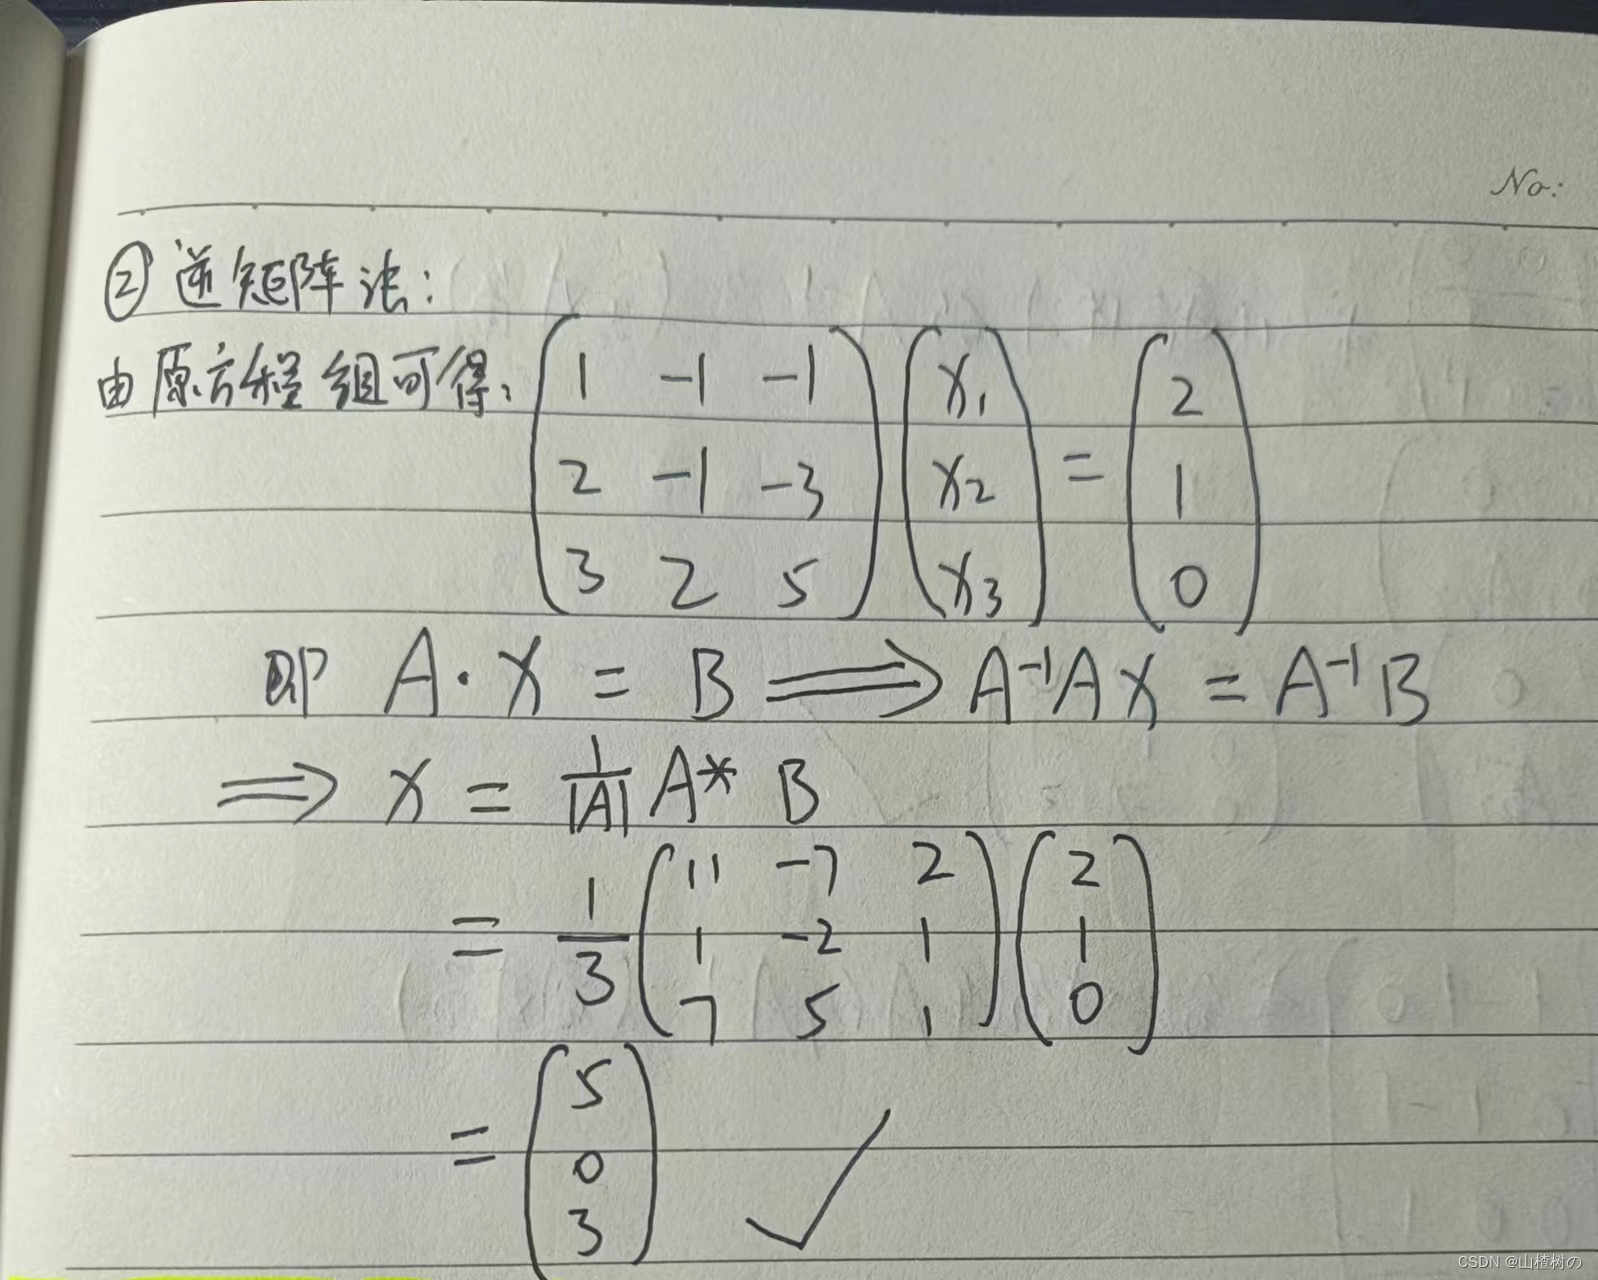 No:
② 逆矩阵法:
由原方程组可得, ( 1 -1 -1 ) ( x₁ ) = ( 2 )
( 2 -1 -3 ) ( x₂ ) ( 1 )
( 3 2 5 ) ( x₃ ) ( 0 )
即 A·X = B ⟹ A⁻¹AX = A⁻¹B
⟹ X = 1/|A| A* B
= 1/3 ( 11 -7 2 ) ( 2 )
( 1 -2 1 ) ( 1 )
( 7 5 1 ) ( 0 )
= ( 5 )
( 0 )
( 3 ) ✓
CSDN @山楂树の